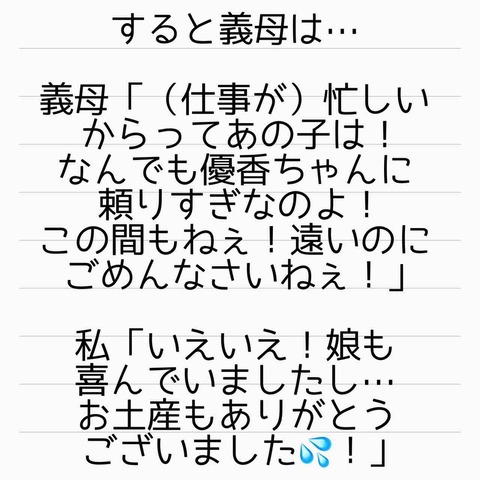 すると義母は…
義母「（仕事が）忙しい
からってあの子は！
なんでも優香ちゃんに
頼りすぎなのよ！
この間もねぇ！遠いのに
ごめんなさいねぇ！」
私「いえいえ！娘も
喜んでいましたし…
お土産もありがとう
ございました💦！」